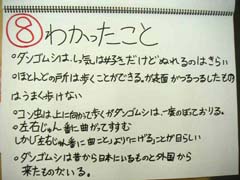 ⑧わかったこと
・ダンゴムシは、しっ気は好きだけどぬれるのはきらい
・ほとんどの所は歩くことができるが表面がつるつるしたもの
はうまく歩けない
・コン虫は上に向かって歩くがダンゴムシは一度のぼっており
・左右じゅん番に曲がってすすむ
しかし左右じゅん番に曲ことよりにげることが日らしい
・ダンゴムシは昔から日本にいるものと外国から
来たものがいる。